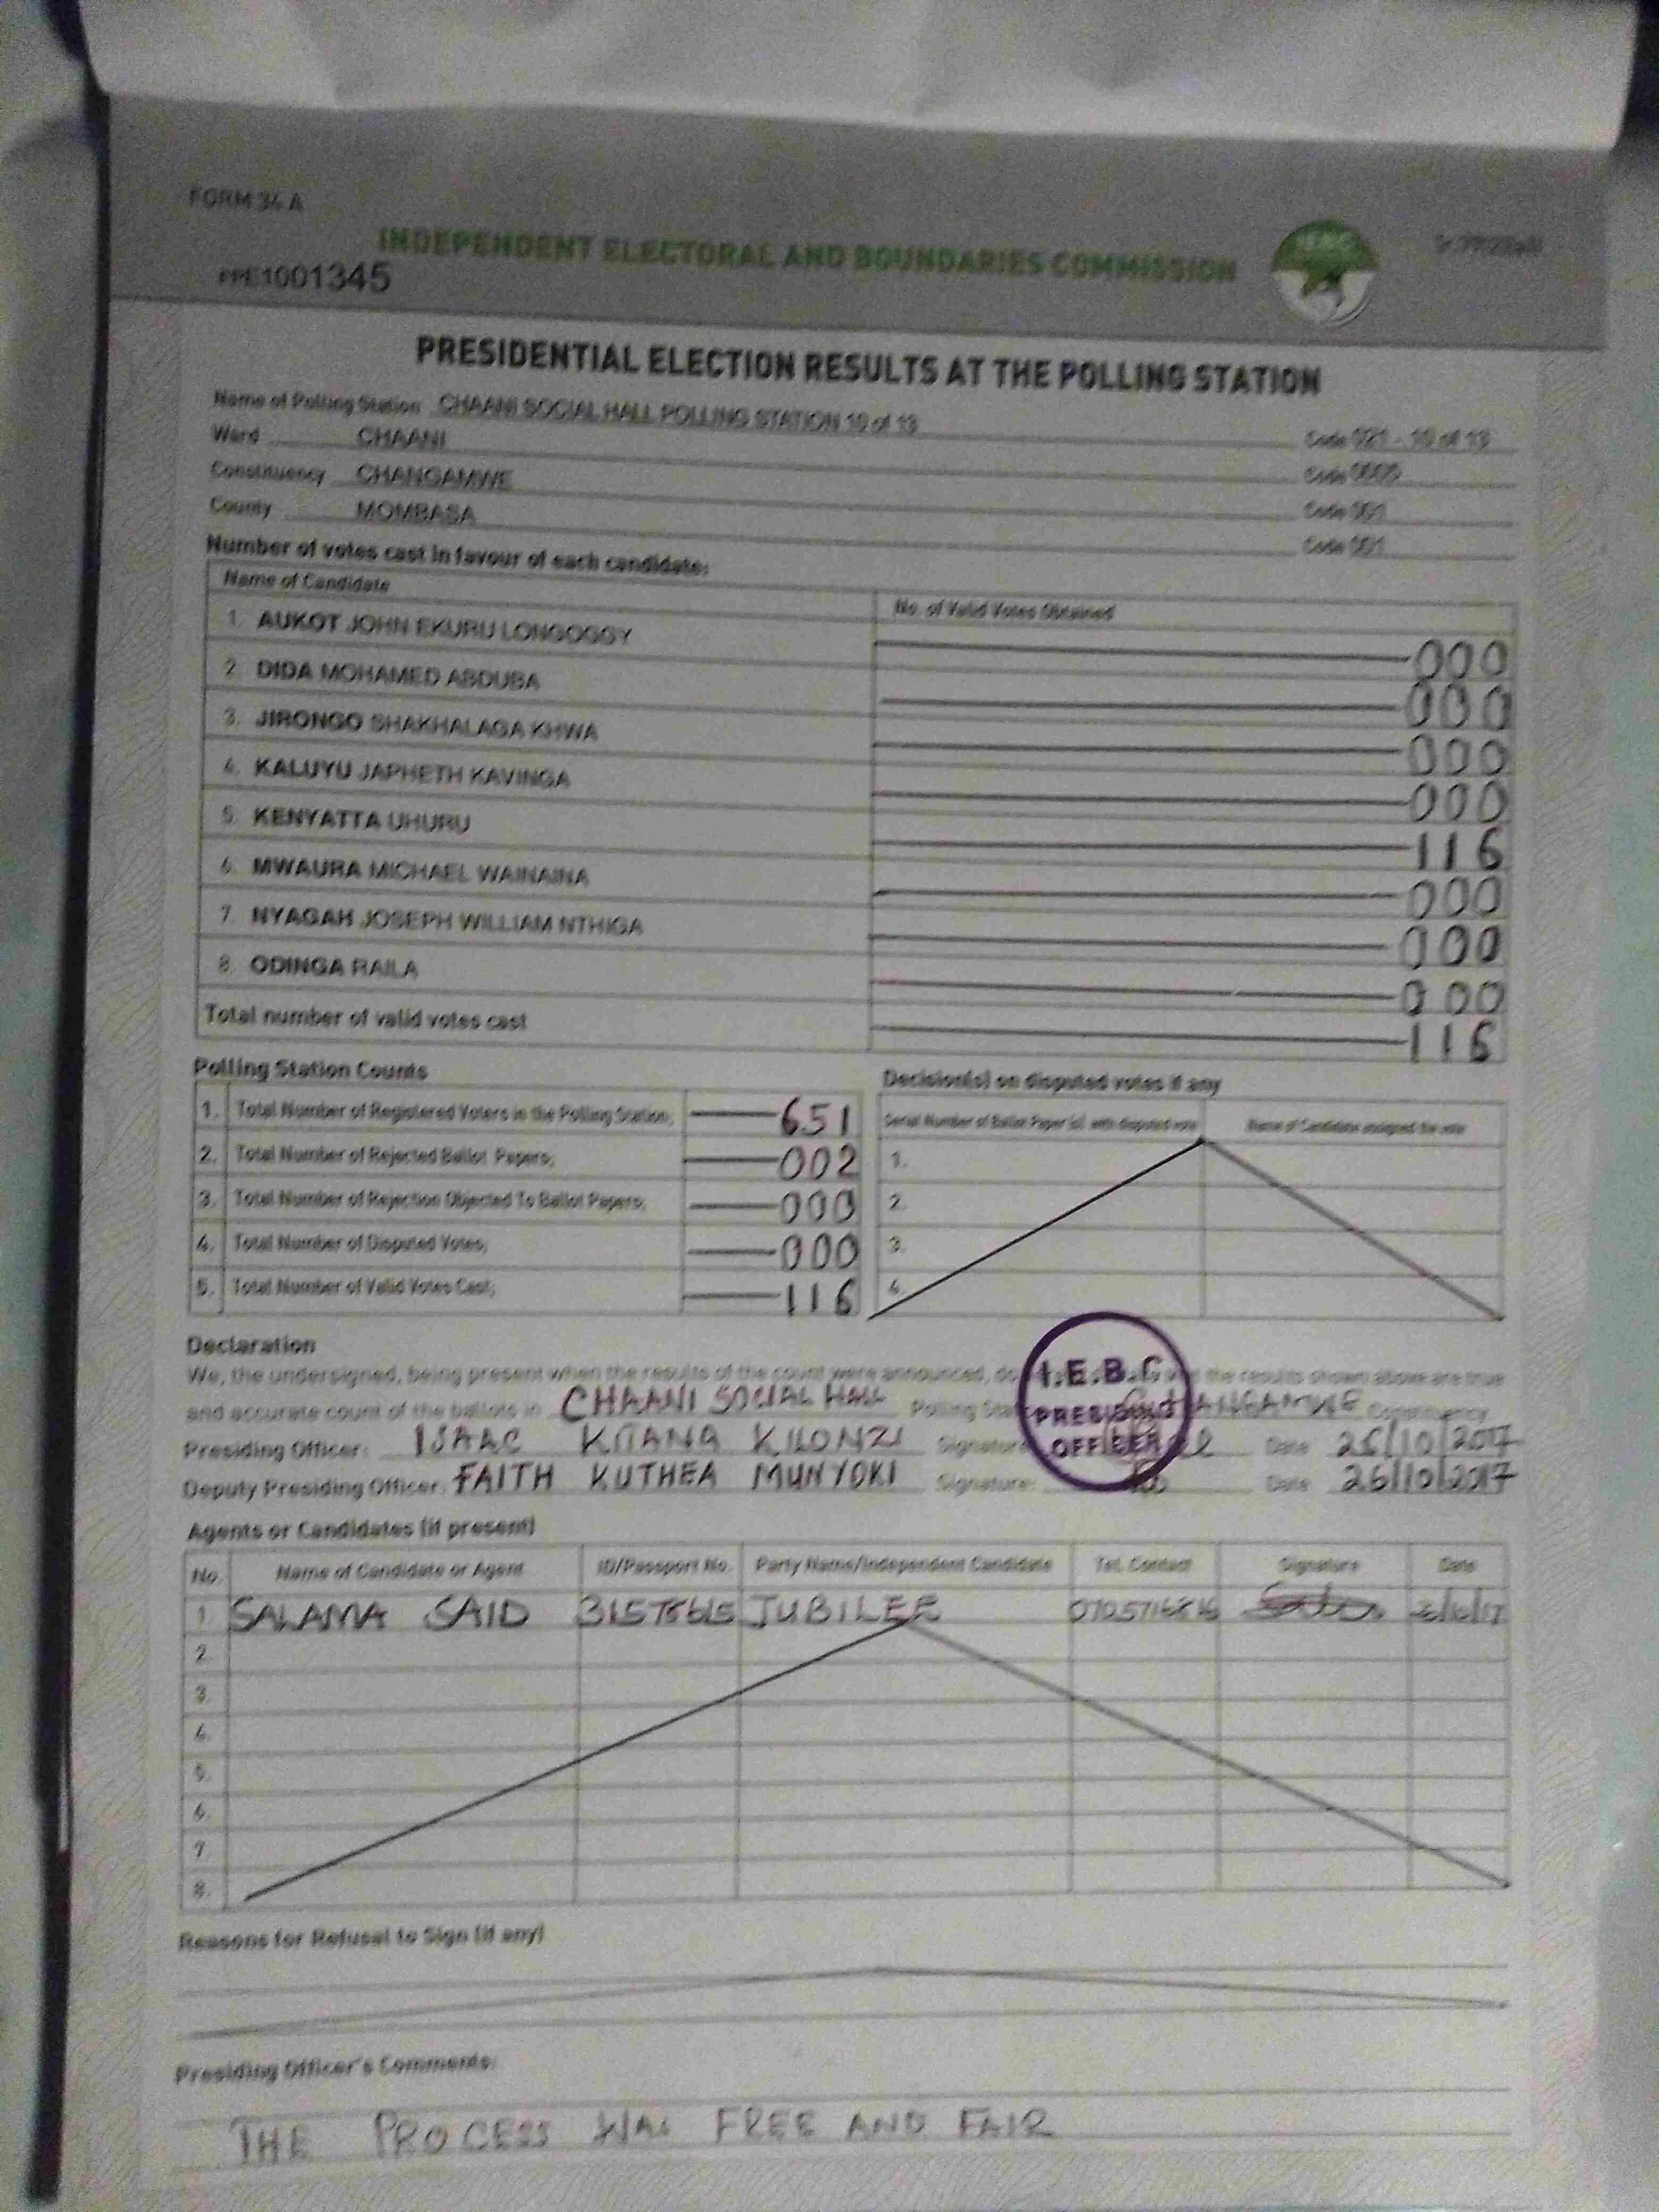 FORM 34 A
INDEPENDENT ELECTORAL AND BOUNDARIES COMMISSION
PPE1001345
PRESIDENTIAL ELECTION RESULTS AT THE POLLING STATION
Name of Polling Station CHAANI SOCIAL HALL POLLING STATION 10 of 13 Code 021 - 10 of 13
Ward CHAANI Code
Constituency CHANGAMWE Code 001
County MOMBASA Code 001
Number of votes cast in favour of each candidate:
Name of Candidate No. of Valid Votes Obtained
1. AUKOT JOHN EKURU LONGOGGY 000
2. DIDA MOHAMED ABDUBA 000
3. JIRONGO SHAKHALAGA KHWA 000
4. KALUYU JAPHETH KAVINGA 000
5. KENYATTA UHURU 116
6. MWAURA MICHAEL WAINAINA 000
7. NYAGAH JOSEPH WILLIAM NTHIGA 000
8. ODINGA RAILA 000
Total number of valid votes cast 116
Polling Station Counts
1. Total Number of Registered Voters in the Polling Station; 651
2. Total Number of Rejected Ballot Papers; 002
3. Total Number of Rejection Objected To Ballot Papers; 000
4. Total Number of Disputed Votes; 000
5. Total Number of Valid Votes Cast; 116
Decision(s) on disputed votes if any
Serial Number of Ballot Paper (s) with disputed vote Name of Candidate assigned the vote
1.
2.
3.
4.
Declaration
We, the undersigned, being present when the results of the count were announced, do the results shown above are true
and accurate count of the ballots in CHAANI SOCIAL HALL Polling CHANGAMWE Constituency
I.E.B.C
PRESIDING
OFFICER
Presiding Officer: ISAAC KITANG KILONZI Signature Date 26/10/2017
Deputy Presiding Officer: FAITH KUTHEA MUNYOKI Signature: Date 26/10/2017
Agents or Candidates (if present)
No. Name of Candidate or Agent ID/Passport No. Party Name/Independent Candidate Tel. Contact Signature Date
1. SALAMA SAID JUBILEE
2.
3.
4.
5.
6.
7.
8.
Reasons for Refusal to Sign (if any)
Presiding Officer's Comments:
THE PROCESS WAS FREE AND FAIR